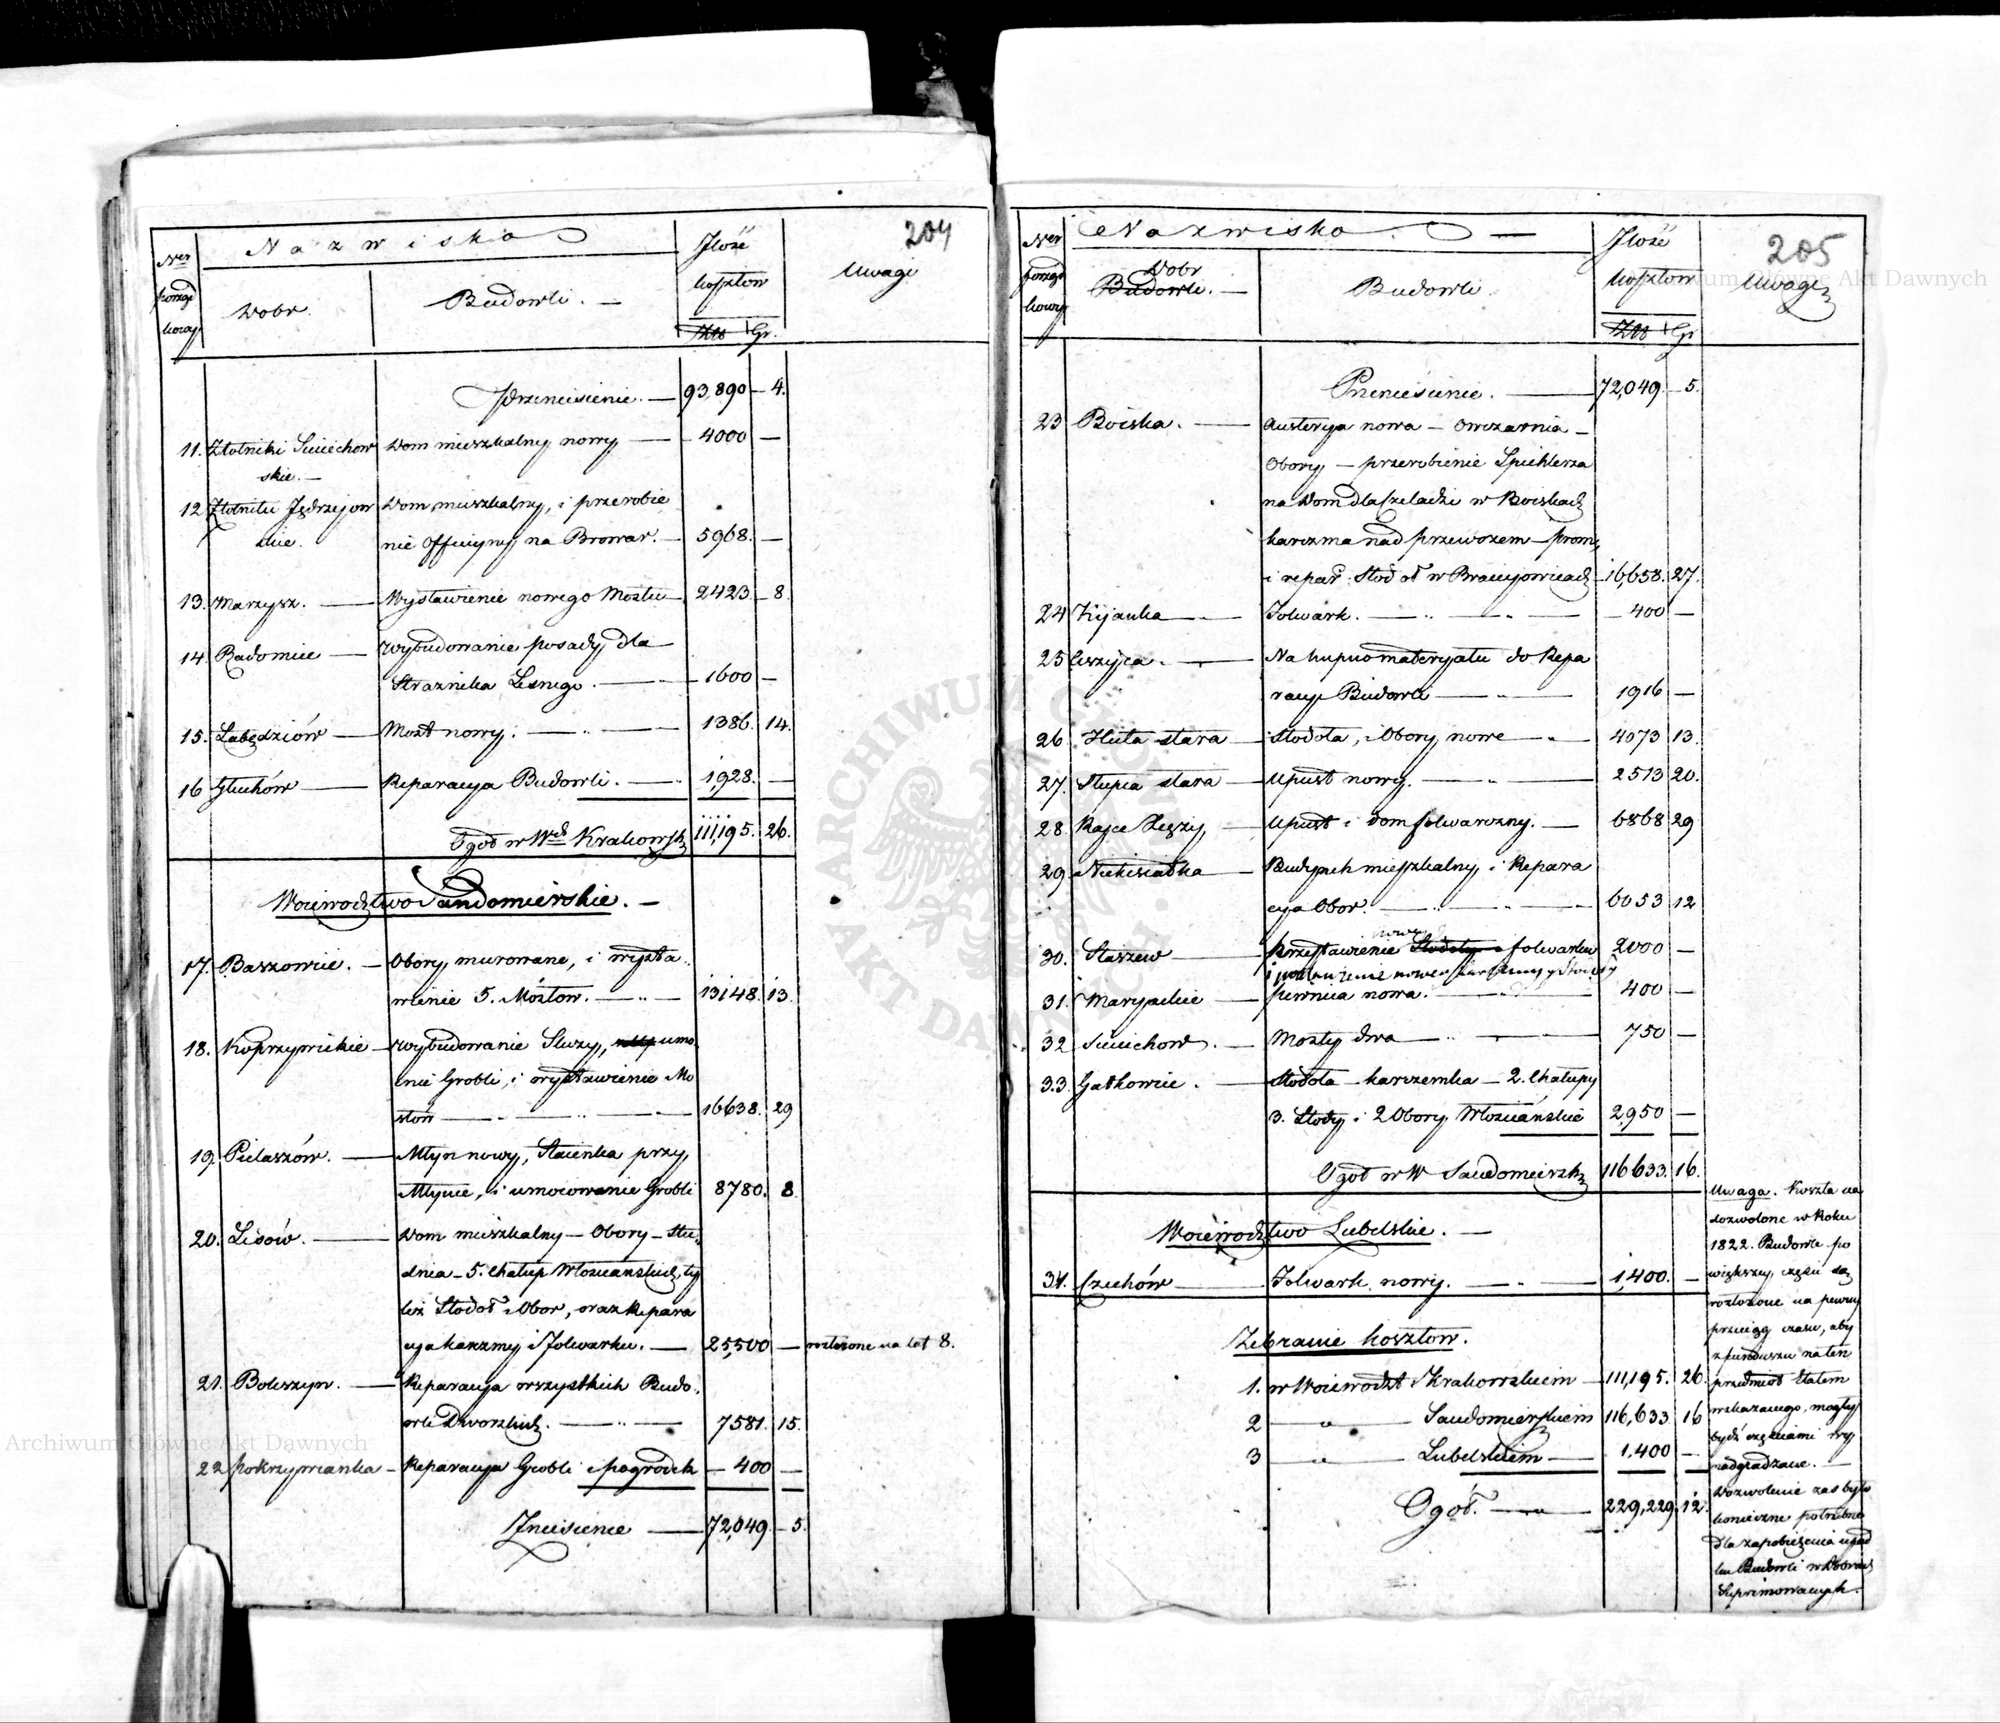 204
Ner
porząd
kowy
Nazwisko
Dobr.
Budowli. —
Jlość
kosztów
Złt Gr.
Uwagi
Przeniesienie. — 93,890 — 4.
11. Złotniki Sieciechow Dom mieszkalny nowy — 4000 —
skie. —
12 Złotniki Jędrzejow Dom mieszkalny, i przerobie
skie. nie Officyny na Browar. — 5968. —
13. Marzysz. — Wystawienie nowego Mostu 2423 — 8.
14. Radomice — Wybudowanie posady dla
Straznika Lesnego. — 1600 —
15. Łabędziów — Most nowy. — 1386. 14.
16 Głuchów — Reparacya Budowli. — 1,928. —
Ogoł w Wdz. Krakowsk 111,195. 26.
Woiewodztwo Sandomierskie. —
17. Baszowice. — Obory murowane, i wysta
wienie 5. Mostow. — 13148. 13.
18. Koprzywickie — Wybudowanie Sluzy, umo
nie Grobli, i wystawienie Mo
stow — 16638. 29
19. Pielaszów. — Młyn nowy, Staienka przy
Młynie, i umocowanie Grobli 8780. 8
20. Lisów. — Dom mieszkalny — Obory — Stu
dnia — 5. Chałup Włosciańskich, ty
leż Stodoł i Obor, oraz Repara
cya karczmy i Folwarku. — 25,500 — rozłożone na lat 8.
21. Boleszyn. — Reparacya wszystkich Budo
wli Dworskich. — 7581. 15.
22 Pokrzywianka — Reparacya Grobli i pogrodek — 400 —
Zniesienie — 72,049. — 5.
205
Ner
porząd
kowy
Nazwisko. —
Dobr
Budowli. —
Budowli.
Jlość
kosztów
Złt Gr
Uwagi
Przeniesienie. — 72,049. — 5.
23 Boiska. — Austerya nowa — Owczarnia —
Obory — przerobienie Spichlerza
na Dom dla Czeladzi w Boiskach
karczma nad przewozem — prom,
i repar: Stodoł w Braciejowicach — 16,658. 27.
24 Kijanka — Folwark. — 400 —
25 — Na kupno materyału do Repa
racyi Budowli — 1916 —
26 Huta stara — Stodoła, i Obory nowe — 4073 13.
27. Słupia stara — Upust nowy. — 2513 20.
28. — Upust i dom folwarczny. — 6868 29
29. Niekisiałka — Budynek mieszkalny i Repara
cya Obor. — 6053 12
nowey
30. Staszew — Przestawienie Stodoły folwarku 2000 —
31. — piwnica nowa. — 400 —
32 Sieciechow. — Mosty dwa — 750 —
33. Gałkowice. — Stodoła — karczemka — 2. Chałupy
3. Stody i 2 Obory Włosciańskie 2,950 —
Ogoł w W Sandomiersk 116,633. 16.
Woiewodztwo Lubelskie. —
34. Czechów — Folwark nowy. — 1,400. —
Zebranie kosztow.
1. w Woiewodzt Krakowskiem — 111,195. 26.
2 — " — Sandomierskiem 116,633 16
3 — " — Lubelskiem — 1,400 —
Ogoł. — 229,229 12.
Uwaga. Koszta na
dozwolone w Roku
1822. Budowle po
większey części są
rozłożone na pewny
przeciąg czasu, aby
z funduszu na ten
przedmiot Etatem
wskazanego, mogły
bydź częściami wy
nadgradzane. —
Dozwolenie zaś było
konieczne potrzebne
dla zapobieżenia upad
ku Budowli w Dobrach
Supprimowanych.
ARCHIWUM GŁÓWNE AKT DAWNYCH
Archiwum Główne Akt Dawnych
Archiwum Główne Akt Dawnych